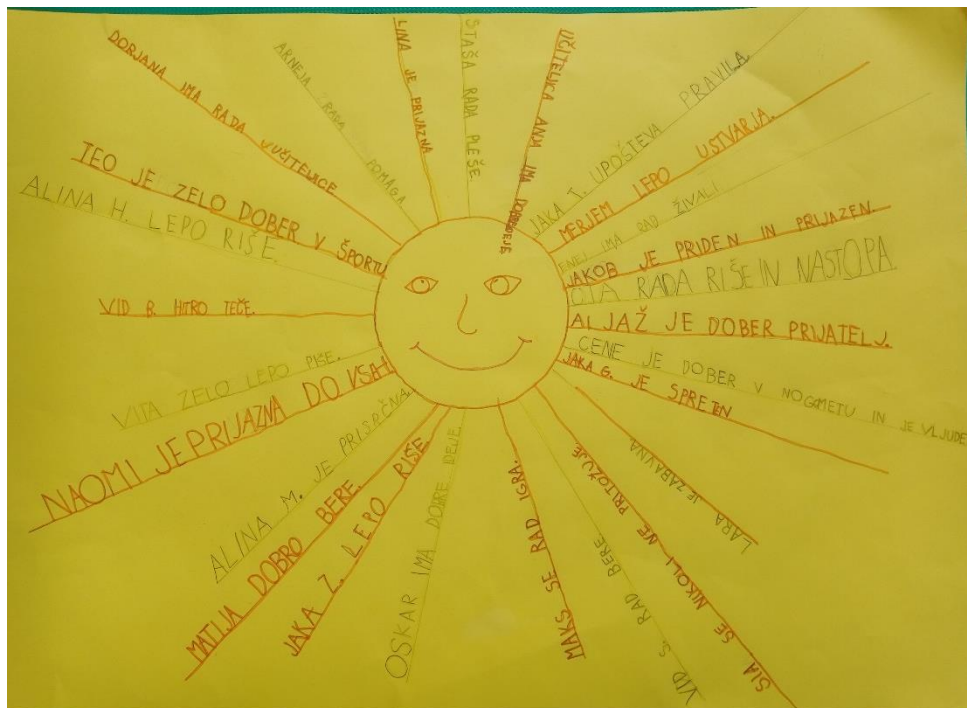 DORJANA IMA RADA VUČITELJICE
ARNEJA RADA POMAGA
LINA JE PRIJAZNA
STAŠA RADA PLEŠE
UČITELJICA ANA IMA
JAKA T. UPOŠTEVA PRAVILA.
MERJEM LEPO USTVARJA.
ENEJ IMA RAD ŽIVALI
JAKOB JE PRIDEN IN PRIJAZEN.
RADA RIŠE IN NASTOPA
ALJAŽ JE DOBER PRIJATELJ.
CENE JE DOBER V NOGAMETU IN JE VLJUDE
JAKA G. JE SPRETEN
LARA JE ZABAVNA
SIA SE NIKOLI NE PRITOŽUJE
VID S. RAD BERE
MAKS SE RAD IGRA.
OSKAR IMA DOBRE IDEJE.
JAKA Z. LEPO RIŠE.
MATIJA DOBRO BERE.
ALINA M. JE PRISRČNA.
NAOMI JE PRIJAZNA DO VSEH
VITA ZELO LEPO PIŠE.
VID B. HITRO TEČE.
ALINA H. LEPO RIŠE.
TEO JE ZELO DOBER V ŠPORTU